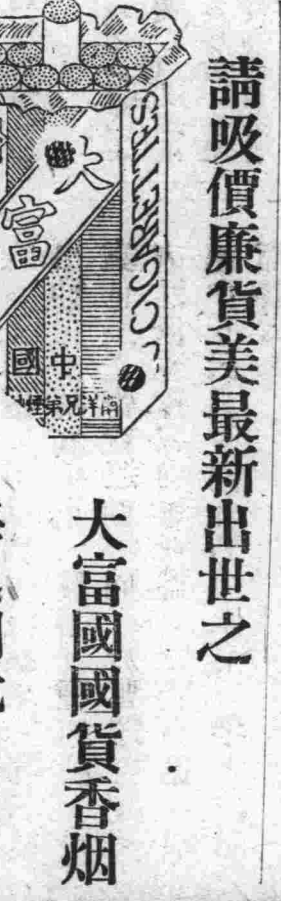 請吸價廉貨美最新出世之
大富國國貨香烟
CIGARETTES
大富
中國
南洋兄弟煙